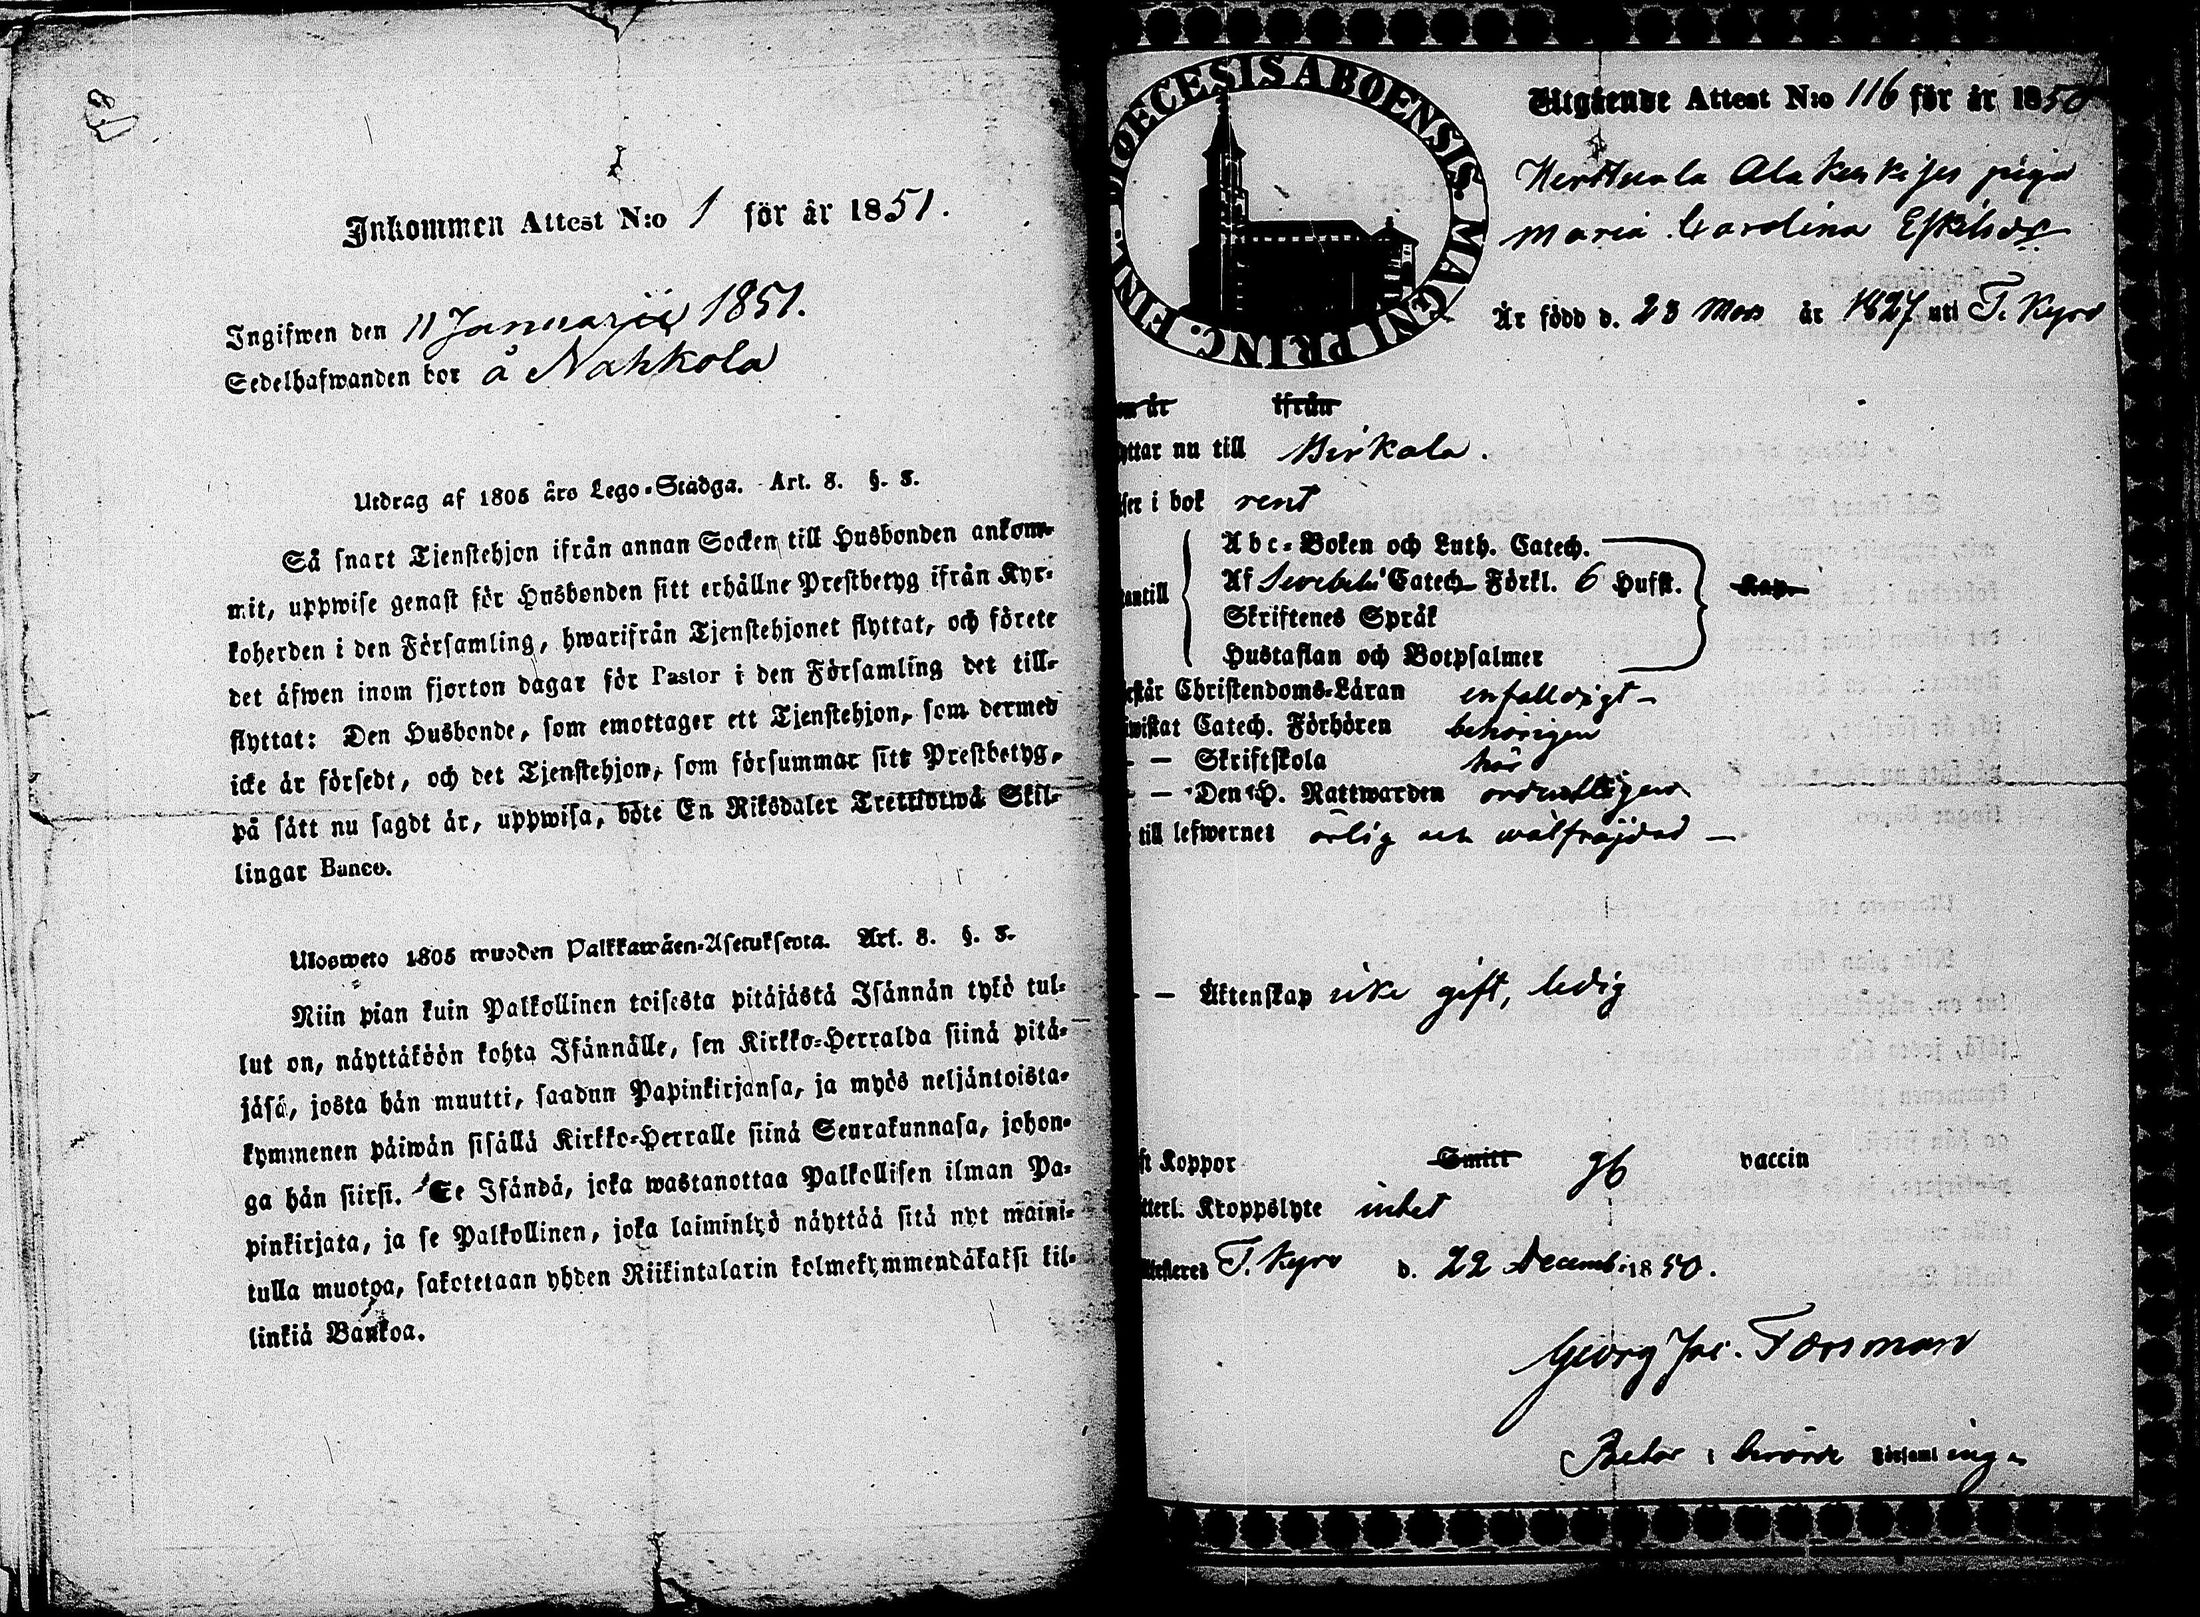 Inkommen Attest N:o 1 för år 1851.
Ingifwen den 11 Januarii 1851.
Sedelhafwanden bor å Nahkola
Utdrag af 1805 års Lego-Stadga. Art. 8. §. 3.
Så snart Tjenstehjon ifrån annan Socken till Husbonden ankom-
mit, uppwise genast för Husbonden sitt erhållne Prestbetyg ifrån Kyr-
koherden i den Församling, hwarifrån Tjenstehjonet flyttat, och förete
det äfwen inom fjorton dagar för Pastor i den Församling det till-
flyttat: Den Husbonde, som emottager ett Tjenstehjon, som dermed
icke är försedt, och det Tjenstehjon, som försummar sitt Prestbetyg,
på sätt nu sagdt är, uppwisa, böte En Riksdaler Trettiotwå Skil-
lingar Banco.
Ulosweto 1805 wuoden Palkkawäen-Asetuksesta. Art. 8. §. 3.
Niin pian kuin Palkollinen toisesta pitäjästä Isännän tykö tul-
lut on, näyttäköön kohta Isännälle, sen Kirkko-Herralda siinä pitä-
jäsä, josta hän muutti, saadun Papinkirjansa, ja myös neljäntoista-
kymmenen päiwän sisällä Kirkko-Herralle siinä Seurakunnasa, johon-
ga hän siirsi. Se Isändä, joka wastanottaa Palkollisen ilman Pa-
pinkirjata, ja se Palkollinen, joka laiminlyö näyttää sitä nyt maini-
tulla muotoa, sakotetaan yhden Riikintalarin kolmekymmendäkaksi kil-
linkiä Bankoa.
DIOECESIS ABOENSIS. MAGNI PRINC. FINL.
Utgående Attest N:o 116 för år 1850
Herttuala Alakeskises piga
Maria Carolina Eskilsdr
Är född d. 23 Mars år 1827 uti T. Kyro
om år ifrån
yttar nu till Birkala.
ser i bok rent
antill
Abc-Boken och Luth. Catech.
Af Svebelii Catech. Förkl. 6 Hufst.
Skriftenes Språk
Hustaflan och Botpsalmer
Kap.
rstår Christendoms-Läran enfalldigt
iwistat Catech. Förhören behörigen
— — Skriftskola här
— — Den H. Nattwarden ordentligen
till lefwernet ärlig och wälfräjdad —
— — Äktenskap icke gift, ledig
ft Koppor Smitt gb vaccin
tterl. Kroppslyte intet
Attesteres T. Kyro d. 22 Decemb. 1850.
Georg Jac. Forsman
i Församling